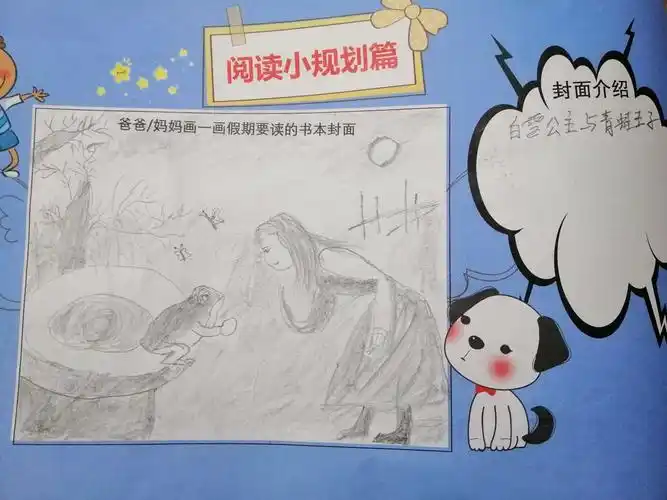 阅读小规划篇
爸爸/妈妈画一画假期要读的书本封面
封面介绍
白雪公主与青蛙王子